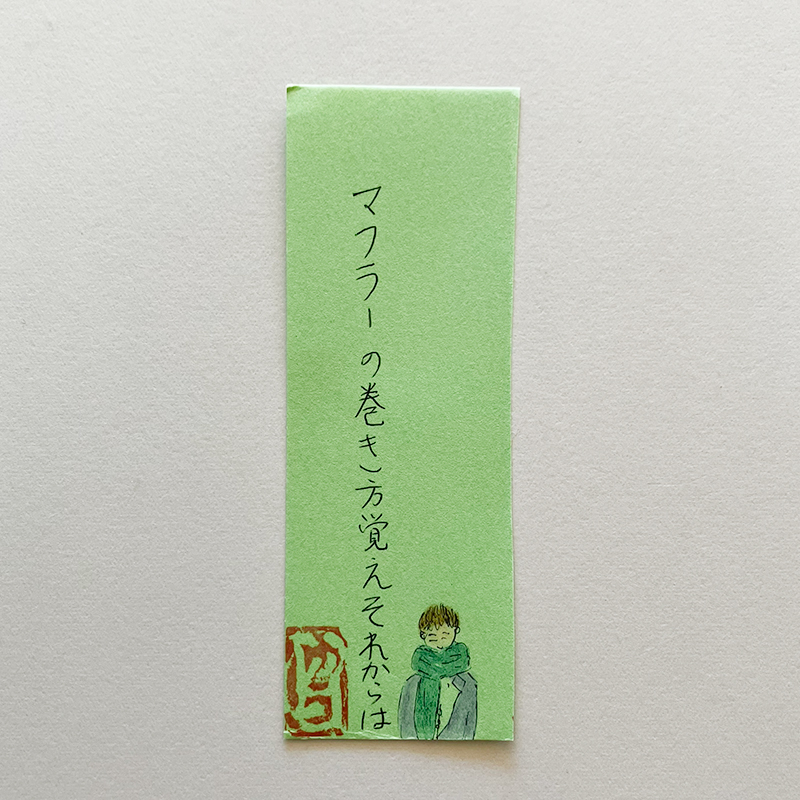 マフラーの巻き方覚えそれからは